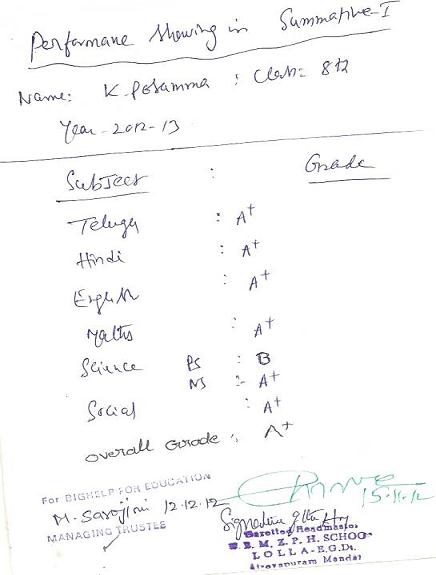 Performane Showing in Summative-I
Name: K. Posamma : Class: 8th
Year-2012-13
Subject : Grade
Telugu : A+
Hindi : A+
English : A+
Maths : A+
Science PS : B
NS :- A+
Social : A+
overall Grade : A+
For BIGHELP FOR EDUCATION
M. Sarojini 12.12.12
MANAGING TRUSTEE
15.11.12
Signature of the Hm
Gazetted Headmaster
M. Z. P. H. SCHOO
LOLLA-E.G.Dt.
Atreyapuram Mandal